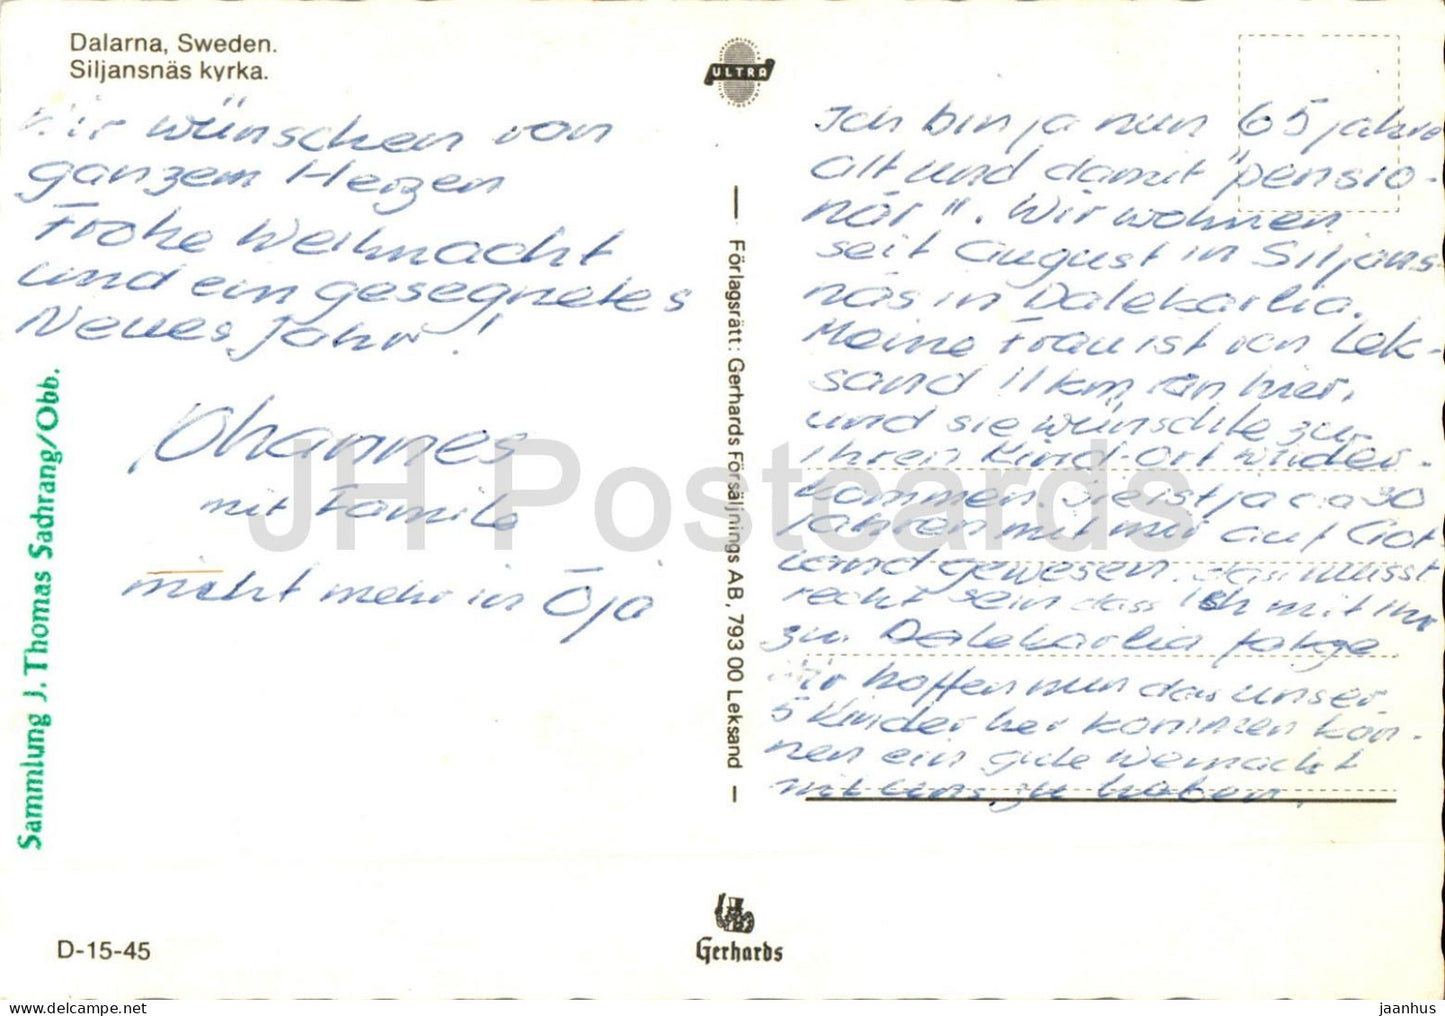 Dalarna, Sweden.
Siljansnäs kyrka.
Wir wünschen von
ganzem Herzen
Frohe Weihnacht
und ein gesegnetes
Neues Jahr!
Johannes
mit Familie
nicht mehr in Öja
Sammlung J. Thomas Sadrang/Obb.
D-15-45
ULTRA
Förlagsrätt: Gerhards Försäljnings AB, 793 00 Leksand
Gerhards
Ich bin ja nun 65 jahre
alt und damit "pensio-
när". Wir wohnen
seit August in Siljans-
näs in Dalekarlia.
Meine Frau ist von Lek-
sand 11 km von hier,
und sie wünschte zu
ihren Kind-ort wieder-
kommen. Sie ist ja ca 30
Jahren mit mir auf Got
land gewesen. das musst
recht sein dass ich mit ihr
zu Dalekarlia folge.
Wir hoffen nun das unser
5 Kinder her kommen kön-
nen ein gute weinacht
mit uns zu haben.
JH Postcards
jaanhus